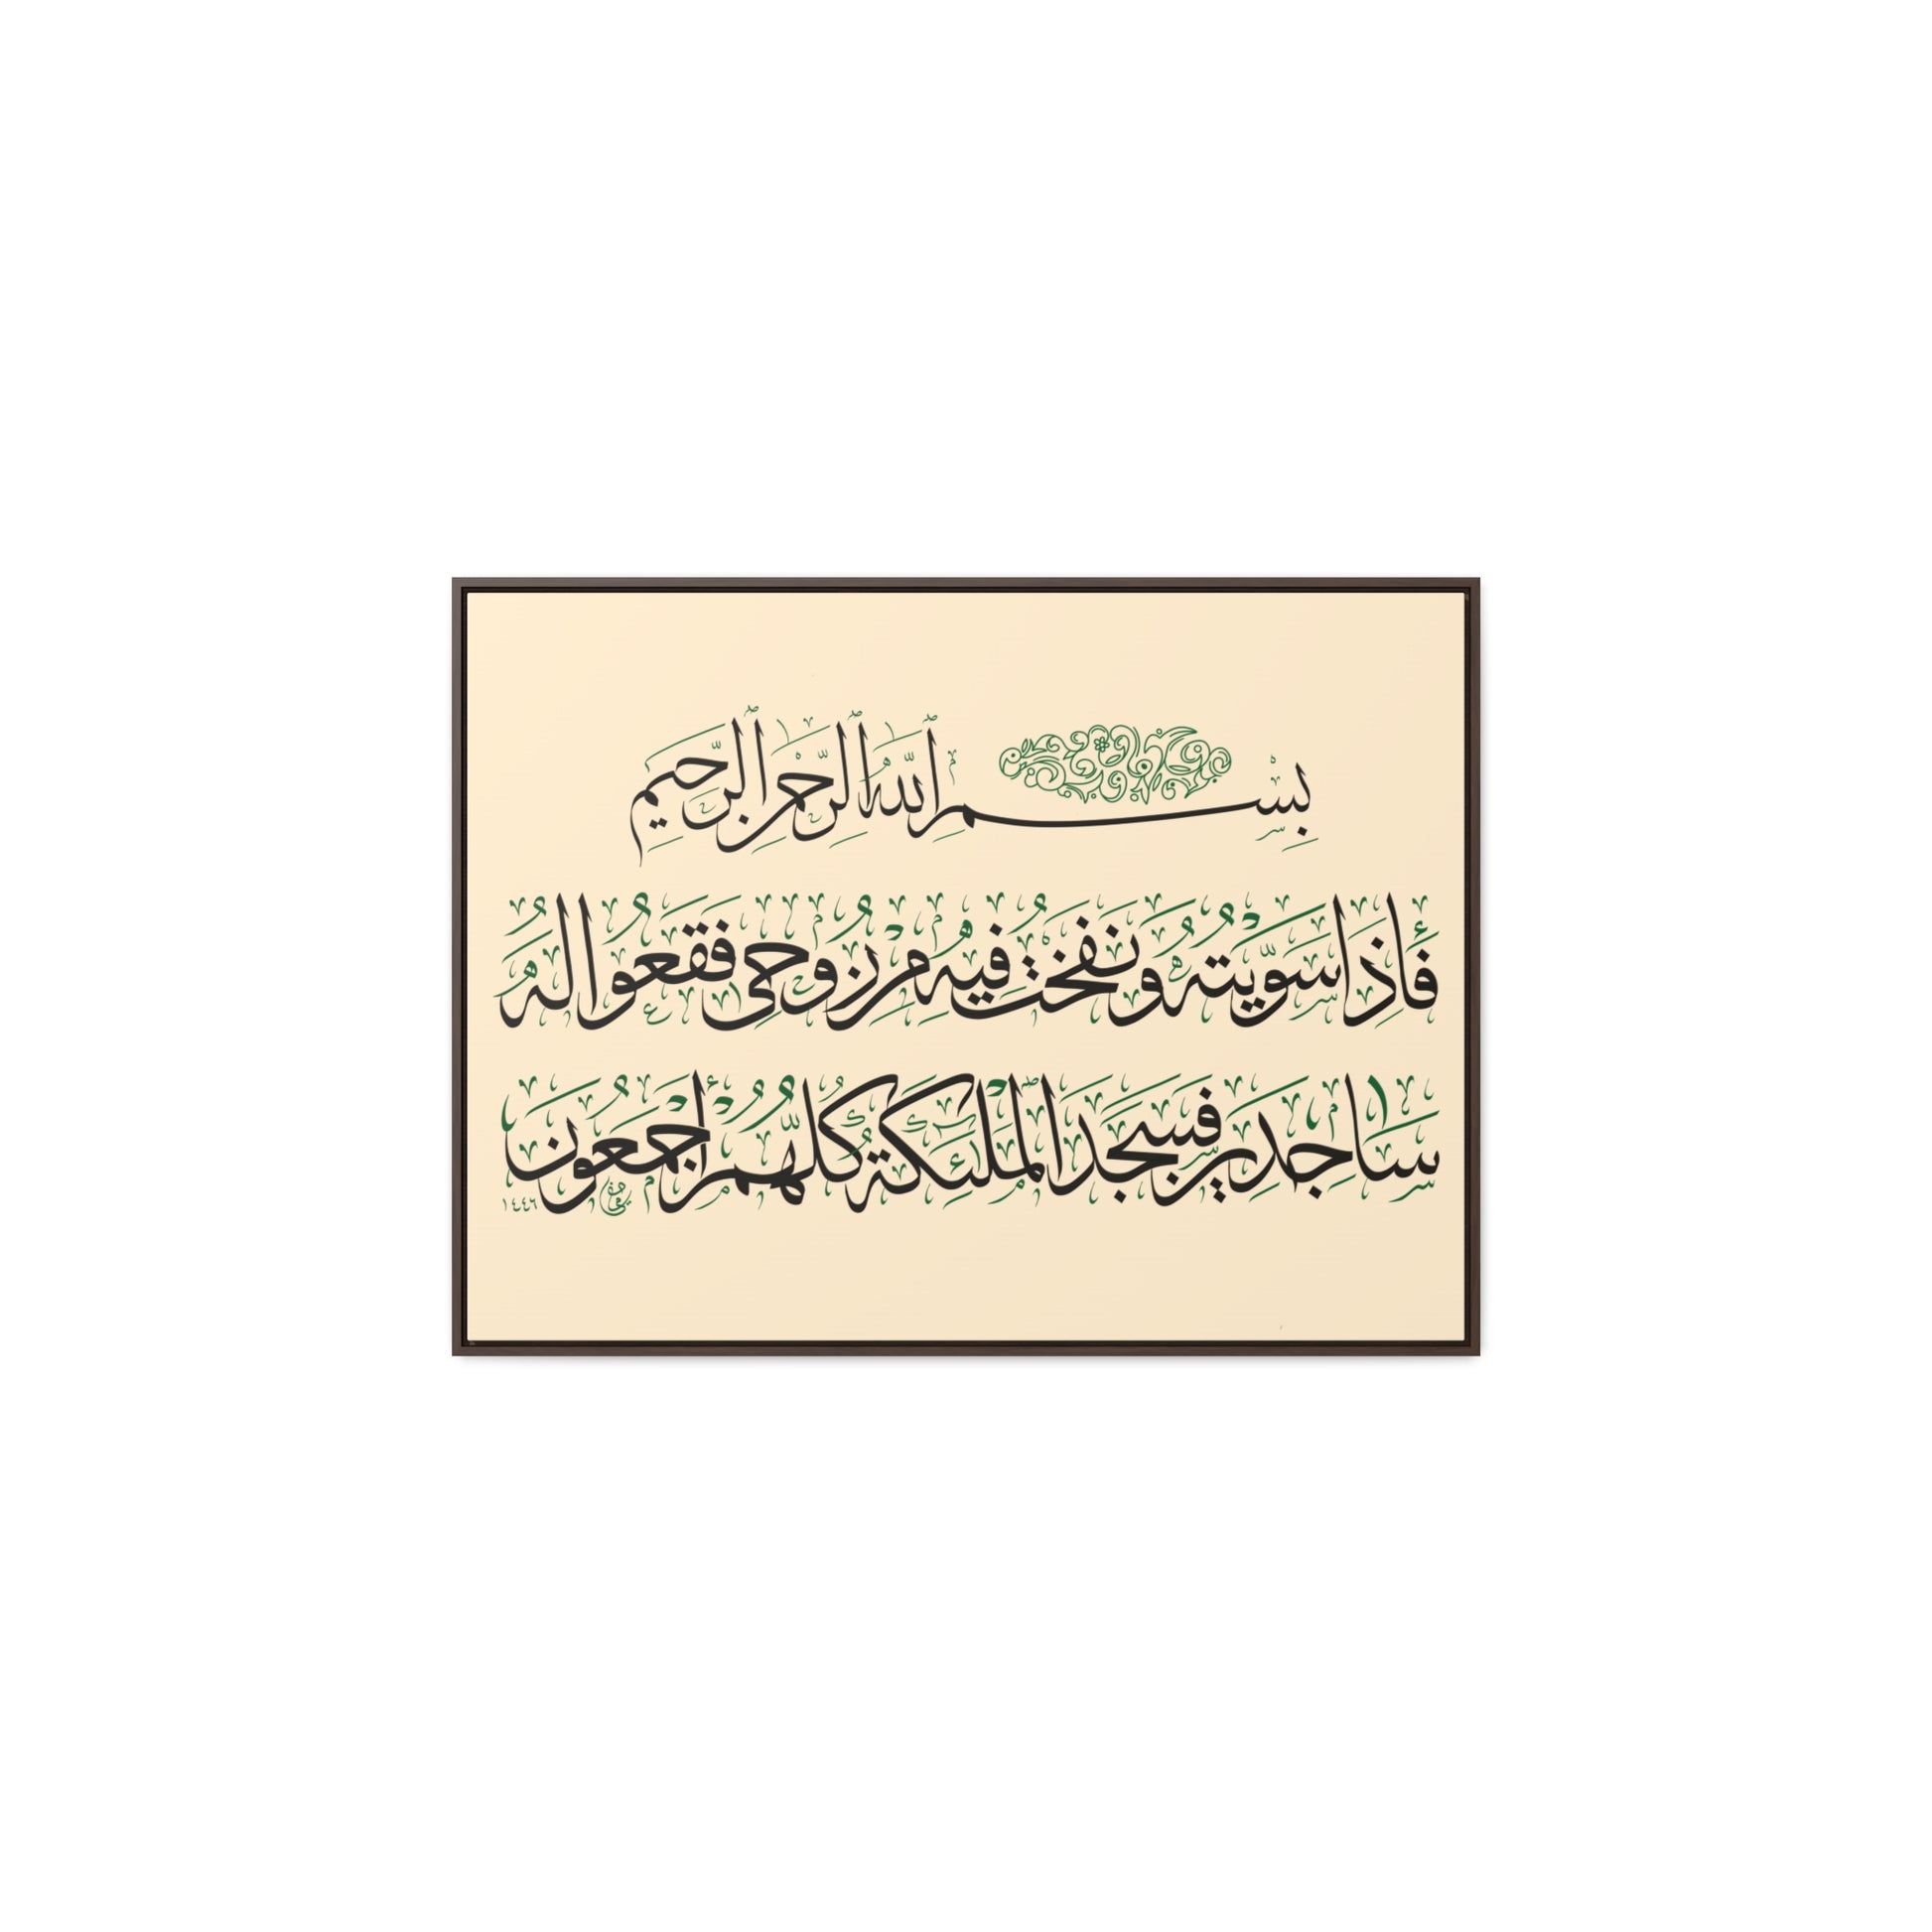 بِسْمِ اللَّهِ الرَّحْمَٰنِ الرَّحِيمِ
فَإِذَا سَوَّيْتُهُ وَنَفَخْتُ فِيهِ مِنْ رُوحِي فَقَعُوا لَهُ
سَاجِدِينَ فَسَجَدَ الْمَلَٰئِكَةُ كُلُّهُمْ أَجْمَعُونَ
١٤٤٦